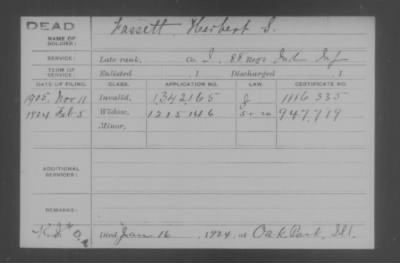 DEAD
NAME OF SOLDIER: Fassett, Herbert S.
SERVICE: Late rank, Co. I, 88 Reg't Ind. Inf
TERM OF SERVICE: Enlisted , 1 Discharged , 1
DATE OF FILING. CLASS. APPLICATION NO. LAW. CERTIFICATE NO.
1905, Nov 11 Invalid, 1,342,165 1116 335
1924 Feb 5 Widow, 1215 146 947,719
Minor,
ADDITIONAL SERVICES:
REMARKS:
Died Jan 16, 1924, at Oak Park, Ill.